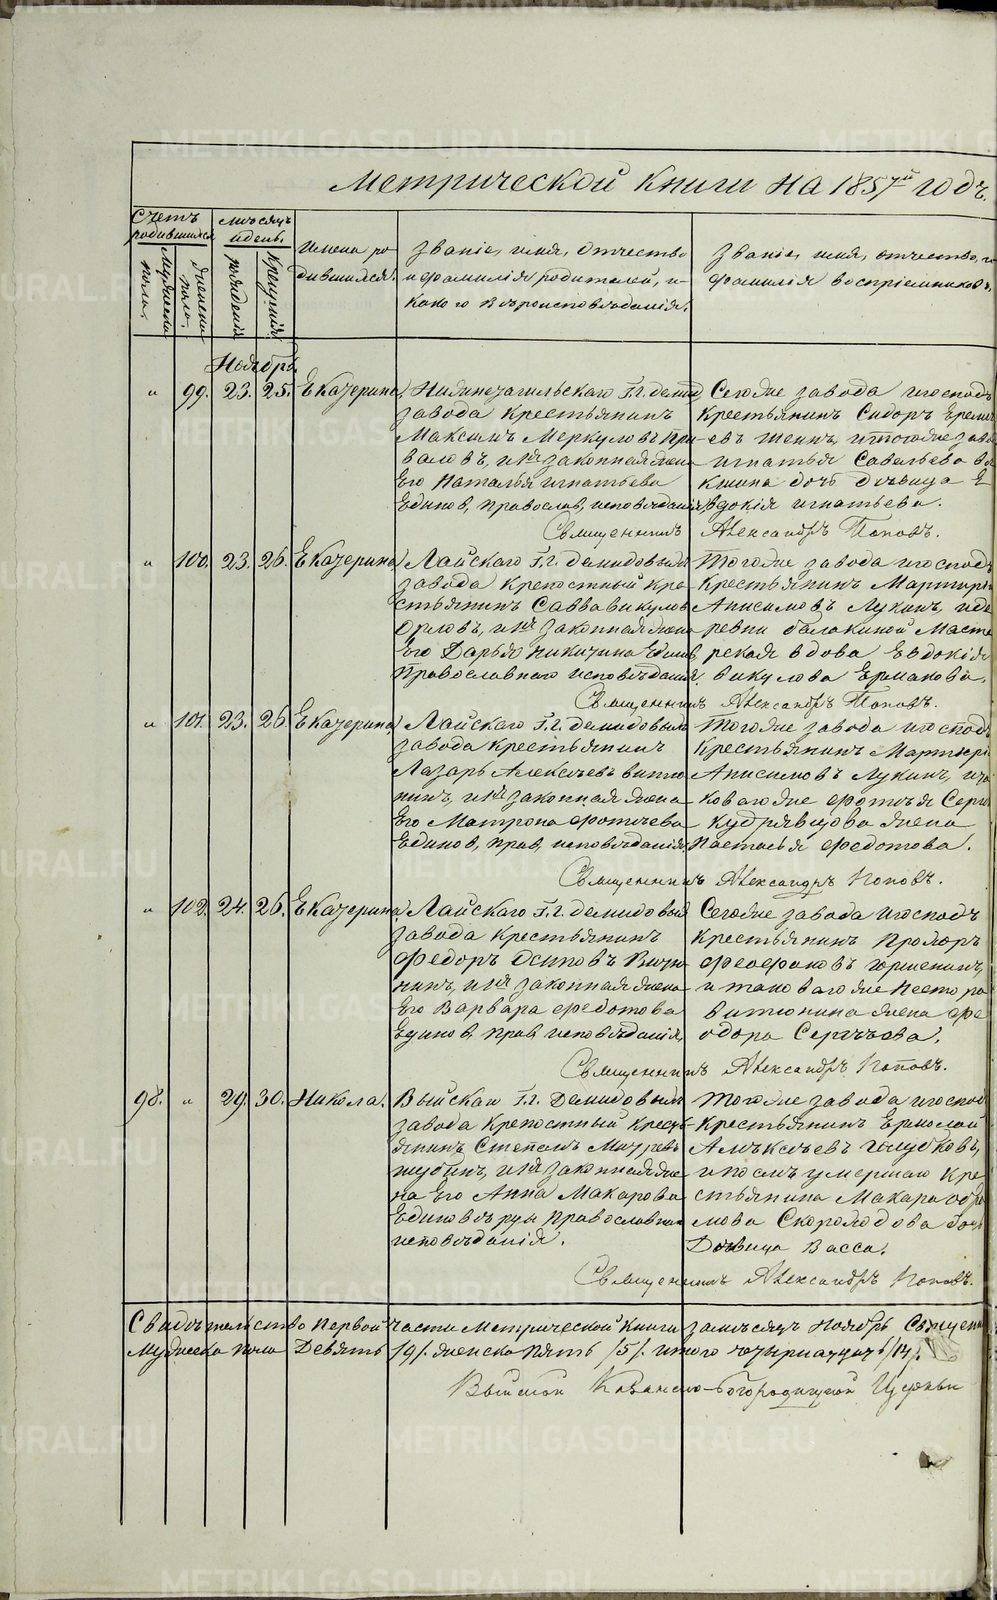 Метрической книги на 1857й годъ.
Счетъ родившихся
Мужеска пола.
Женска пола.
Мѣсяцъ и день.
рожденія
крещенія
Имена родившихся.
Званіе, имя, отчество
и фамилія родителей, и
какого вѣроисповѣданія.
Званіе, имя, отчество, и
фамилія воспріемниковъ.
Ноябрь
" 99. 23. 25. Екатерина
Нижнетагильскаго Г.г. Демид
завода крестьянинъ
Максимъ Меркуловъ При-
валовъ, и ея законная жена
Его Наталья Игнатьева
Единов, православ, исповѣданія,
Сегоже завода и господъ
крестьянинъ Сидоръ Ереме
евъ и тогоже заво
Игнатья Савельева
дочь дѣвица Е
вдокія Игнатьева.
Священникъ Александръ Поповъ.
" 100. 23. 26. Екатерина
Лайскаго Г.г. Демидовыхъ
завода крепостный кре-
стьянинъ Савва Викулов
Орловъ, и ея законная жена
Его Дарья Никитина Единов,
Православнаго исповѣданія.
Тогоже завода и господъ
крестьянинъ Мартирі
Анисимовъ Лукинъ, и де
ревни Балакиной Масте
рская вдова Евдокія
Викулова Ермакова.
Священникъ Александръ Поповъ.
" 101. 23. 26. Екатерина.
Лайскаго Г.г. Демидовыхъ
завода крестьянинъ
Лазарь Алексѣевъ
нинъ, и ея законная жена
Его Матрона Фотіева
Единов, прав, исповѣданія,
Тогоже завода и господъ
крестьянинъ Мартирі
Анисимовъ Лукинъ, и та
коваго же Серг
Кудрявцова жена
Настасья Федотова.
Священникъ Александръ Поповъ.
" 102. 24. 26. Екатерина.
Лайскаго Г.г. Демидовыхъ
завода крестьянинъ
Федоръ Осиповъ
нинъ, и ея законная жена
Его Варвара Федотова
Единов, прав, исповѣданія,
Сегоже завода и господъ
крестьянинъ Прохоръ
Феофановъ Горшенинъ,
и таковагоже Нестора
Витюнина жена Фе
одора Сергѣева.
Священникъ Александръ Поповъ.
98. " 29. 30. Никола.
Выйскаго Г.г. Демидовыхъ
завода крепостный кресть-
янинъ Степанъ
Шубинъ, и ея законная же
на Его Анна Макарова
Единовѣрцы Православнаго
исповѣданія.
Тогоже завода и господ
крестьянинъ Ермолай
Алексѣевъ Голубковъ,
и умершаго кре
стьянина Макара Абра
мова Скороходова дочь
Дѣвица Васса.
Священникъ Александръ Поповъ.
Свидѣтельство первой части Метрической книги за мѣсяцъ Ноябрь
Мужеска пола Девять /9/. женска пять /5/. итого четырнадцать /14/.
Выйской Казанско-Богородицкой Церкви